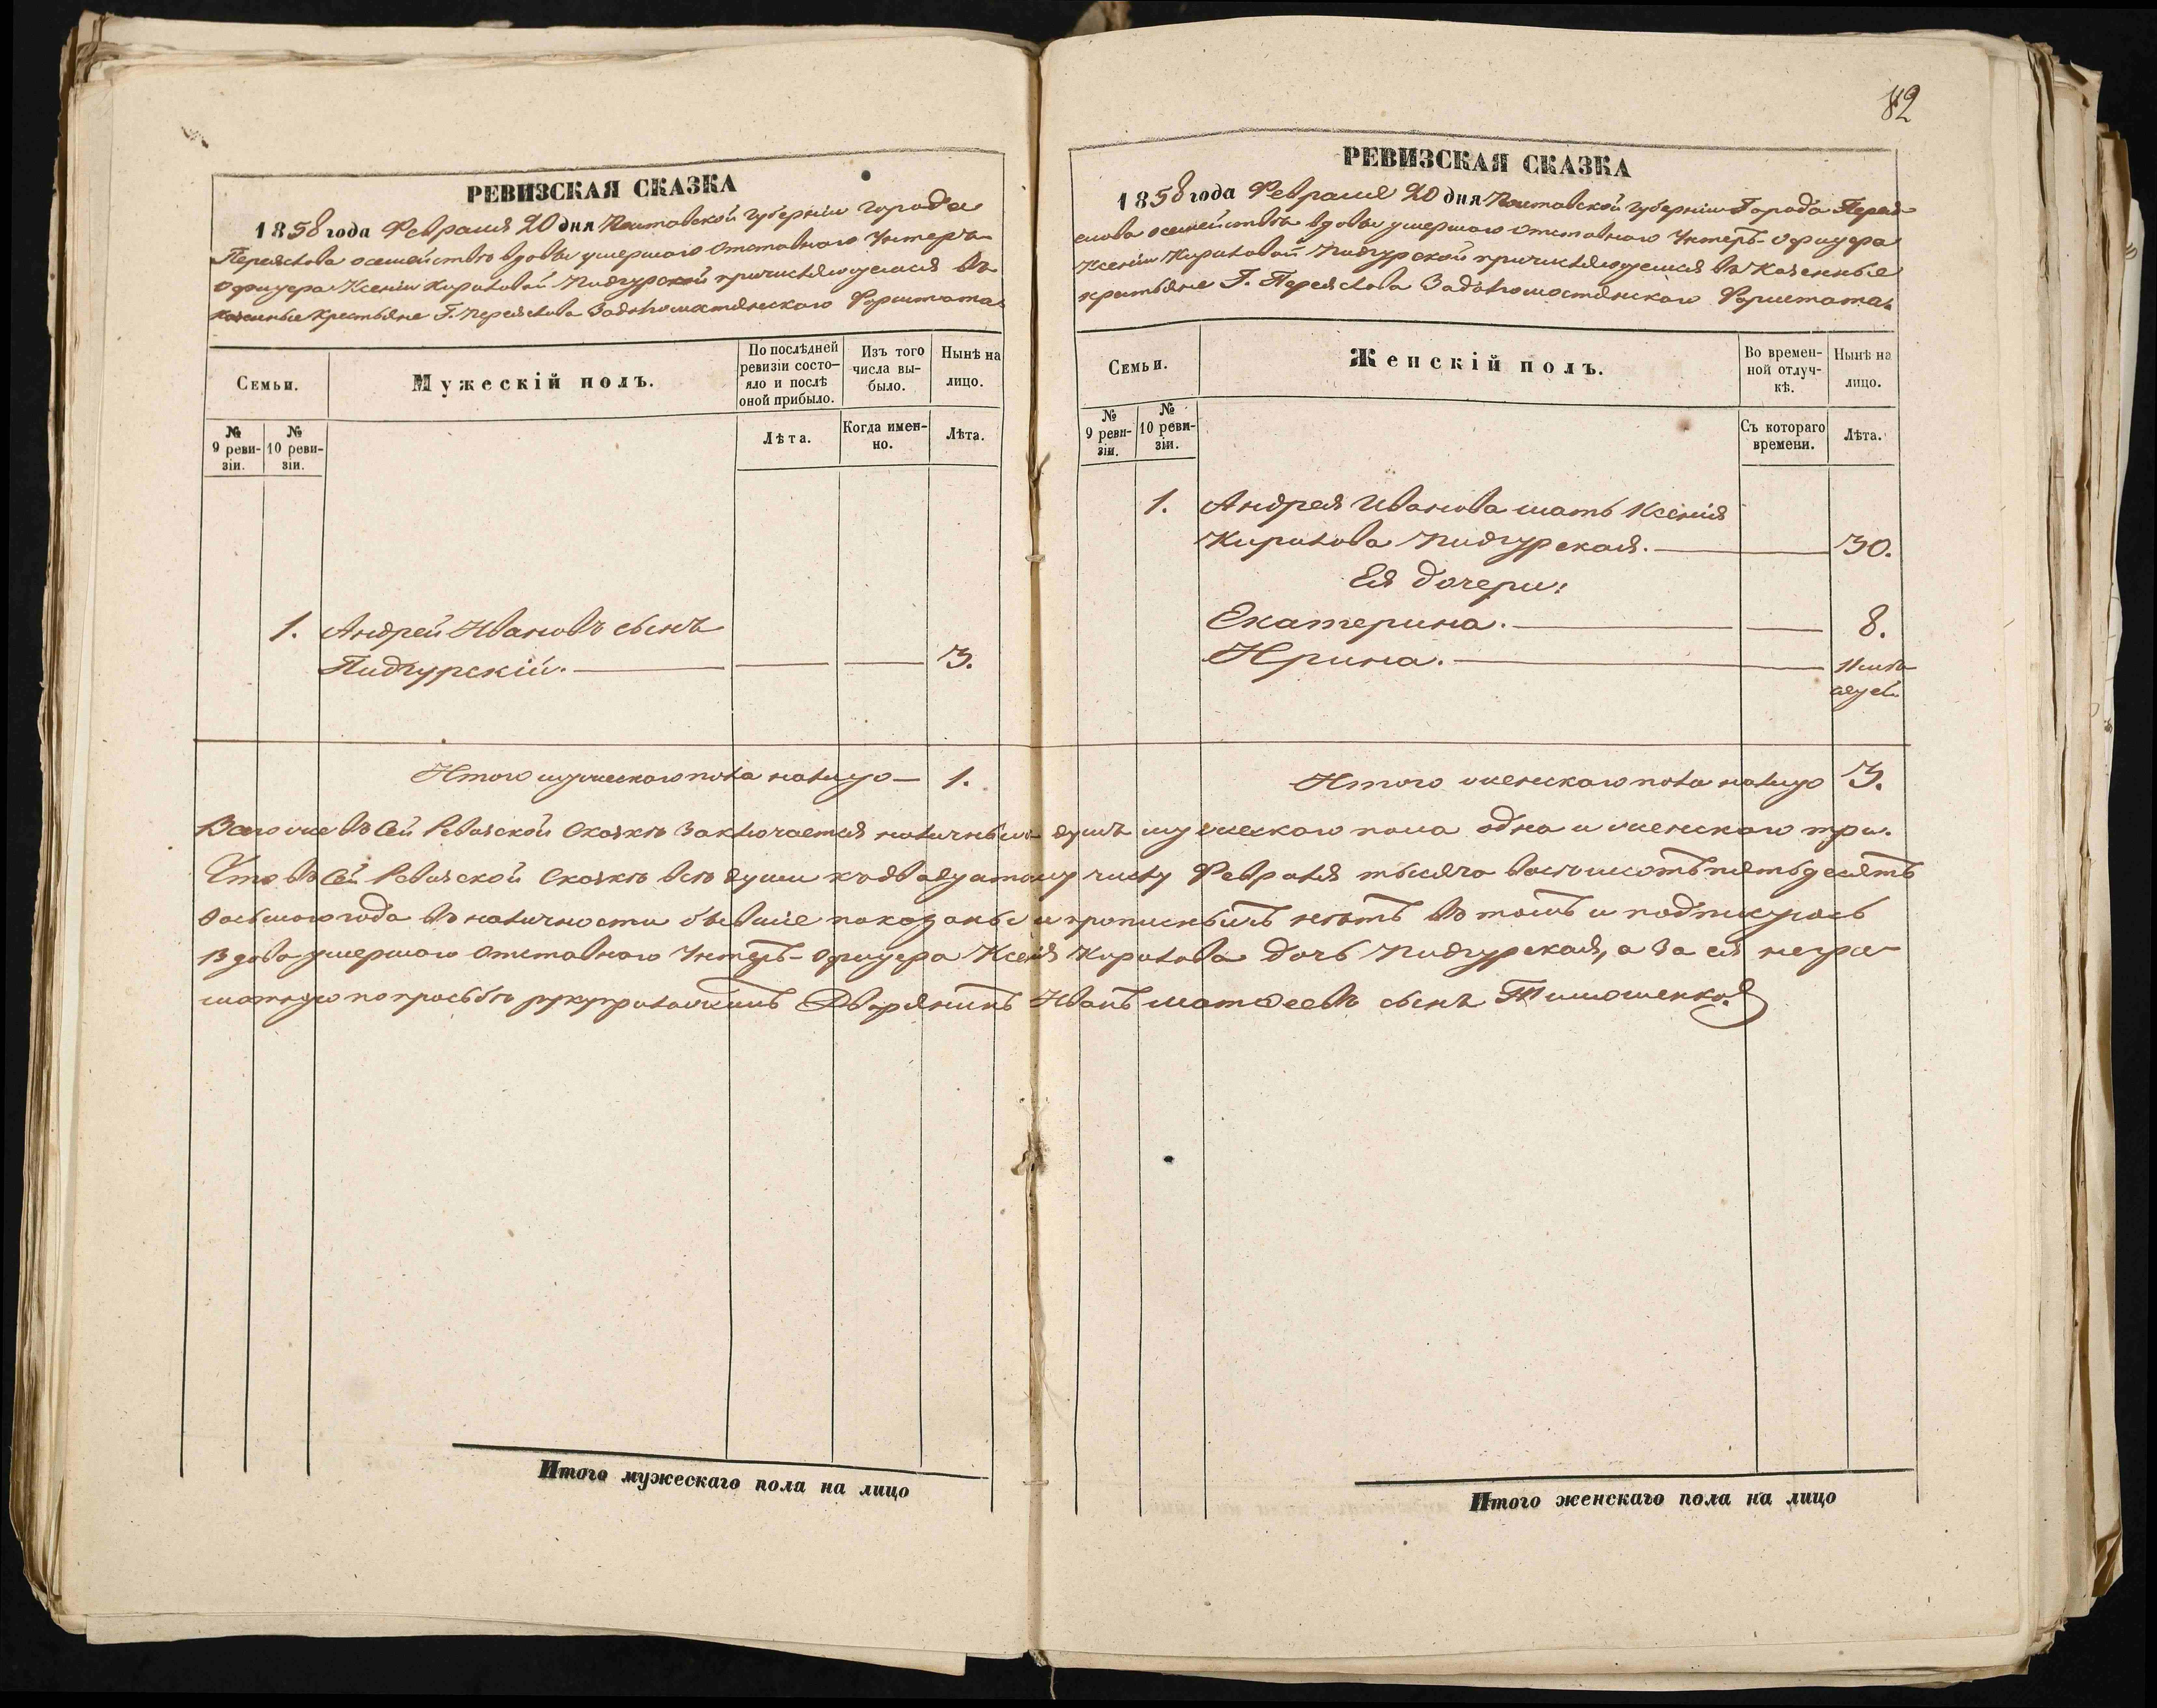 82
РЕВИЗСКАЯ СКАЗКА
1858 года Февраля 20 дня Полтавской губерніи города
Переяслова осемействѣ вдовы умершаго Отставнаго Унтеръ
Офицера Ксеніи Кириловой Пидгурской причисляющемся въ
казенные крестьяне Г. Переяслова Задолгомостянскаго Форштата.
Семьи.
Мужескій полъ.
По послѣдней ревизіи состояло и послѣ оной прибыло.
Изъ того числа выбыло.
Нынѣ на лицо.
№ 9 ревизіи.
№ 10 ревизіи.
Лѣта.
Когда именно.
Лѣта.
1. Андрей Ивановъ сынъ
Пидгурскій. 3.
Итого мужескаго пола налицо 1.
РЕВИЗСКАЯ СКАЗКА
1858 года Февраля 20 дня Полтавской губерніи Города Перея-
слова осемействѣ вдовы умершаго отставнаго Унтеръ-офицера
Ксеніи Кириловой Пидгурской причисляющемся въ Казенные
крестьяне Г. Переяслова Задолгомостянскаго Форштата.
Семьи.
Женскій полъ.
Во временной отлучкѣ.
Нынѣ на лицо.
№ 9 ревизіи.
№ 10 ревизіи.
Съ котораго времени.
Лѣта.
1. Андрея Иванова мать Ксенія
Кирилова Пидгурская. 30.
Ея дочери:
Екатерина. 8.
Ирина. 11 мѣся
Итого женскаго пола налицо 3.
Всего же въ Сей Ревизской Сказкѣ заключается наличныхъ душъ мужескаго пола одна и женскаго три.
Что въ Сей Ревизской Сказкѣ всѣ души къ двадцатому числу Февраля тысяча восемьсотъ пятьдесятъ
восьмого года въ наличности бывшіе показаны и прописныхъ нѣтъ въ томъ и подпишусь
Вдова умершаго отставнаго Унтеръ-Офицера Ксенія Кирилова дочь Пидгурская, а за ея негра-
мотную по просьбѣ руку приложилъ Дворянинъ Иванъ Матѳеевъ сынъ Тимошенко.
Итого мужескаго пола на лицо
Итого женскаго пола на лицо